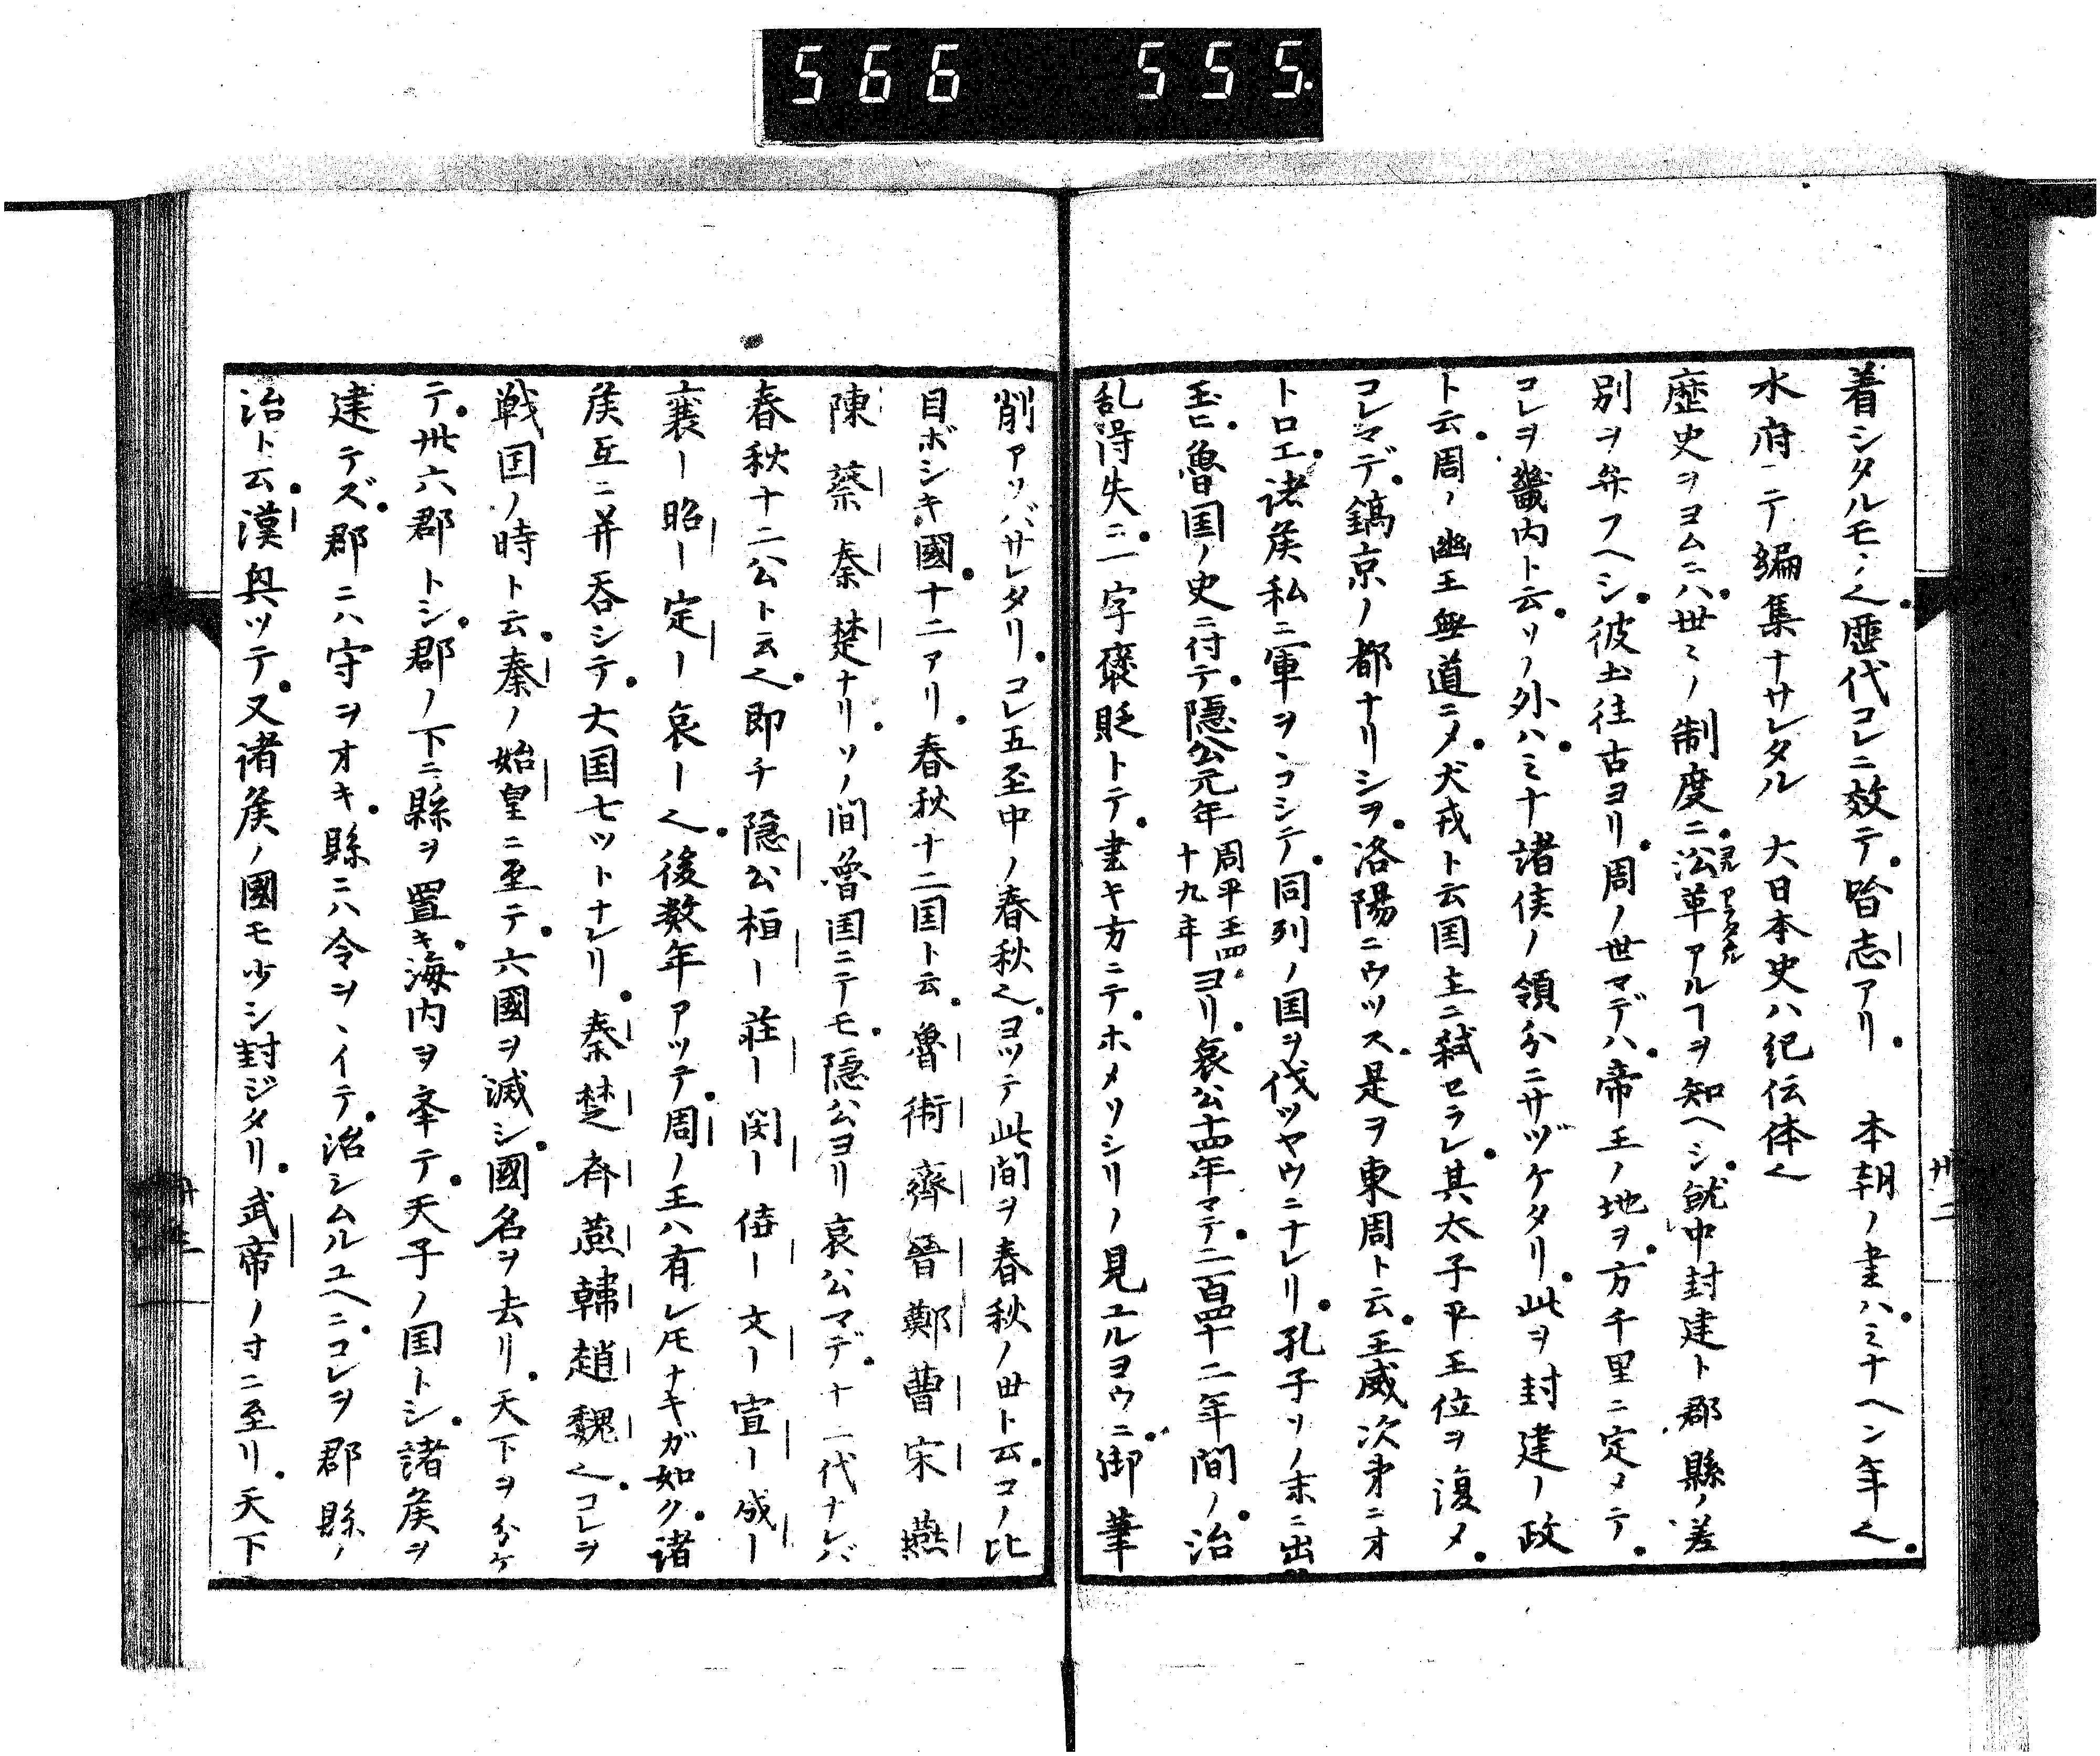 566 555.
着シタルモノ也歴代コレニ效テ皆志アリ　本朝ノ書ハミナヘン年也
水府ニテ編集ナサレタル　大日本史ハ紀伝体也
歴史ヲヨムニハ世ミノ制度ニ㳂革アルヿヲ知ヘシ就中封建ト郡縣ノ差
別ヲ弁フヘシ彼土往古ヨリ周ノ世マデハ帝王ノ地ヲ方千里ニ定メテ
コレヲ畿内ト云ソノ外ハミナ諸侯ノ領分ニサヅケタリ此ヲ封建ノ政
ト云周ノ幽王無道ニメ犬戎ト云国主ニ弑セラレ其太子平王位ヲ復メ
コレマデ鎬京ノ都ナリシヲ洛陽ニウツス是ヲ東周ト云王威次第ニオ
トロエ諸矦私ニ軍ヲヽコシテ同列ノ国ヲ伐ツヤウニナレリ孔子ソノ末ニ出
玉ヒ魯国ノ史ニ付テ隠公元年周平王四十九年ヨリ哀公十四年マテ二百四十二年間ノ治
乱得失ニ一字褒貶トテ書キ方ニテホメソシリノ見エルヨウニ御筆
削アソバサレタリコレ五至中ノ春秋也ヨツテ此間ヲ春秋ノ世ト云コノ比
目ボシキ國十二アリ春秋十二国ト云魯衛齊晉鄭曹宋燕
陳蔡秦楚ナリソノ間魯国ニテモ隠公ヨリ哀公マデ十二代ナレバ
春秋十二公ト云也即チ隠公桓ー荘ー閔ー僖ー文ー宣ー成ー
襄ー昭ー定ー哀ー也後数年アツテ周ノ王ハ有レ𪜈ナキガ如ク諸
矦互ニ并呑シテ大国七ツトナレリ秦楚斉燕韓趙魏也コレヲ
戦国ノ時ト云秦ノ始皇ニ至テ六國ヲ滅シ國名ヲ去リ天下ヲ分ケ
テ卅六郡トシ郡ノ下ニ縣ヲ置キ海内ヲ挙テ天子ノ国トシ諸矦ヲ
建テズ郡ニハ守ヲオキ縣ニハ令ヲヽイテ治シムルユヘニコレヲ郡縣ノ
治ト云漢興ツテ又諸矦ノ國モ少シ封ジタリ武帝ノ寸ニ至リ天下